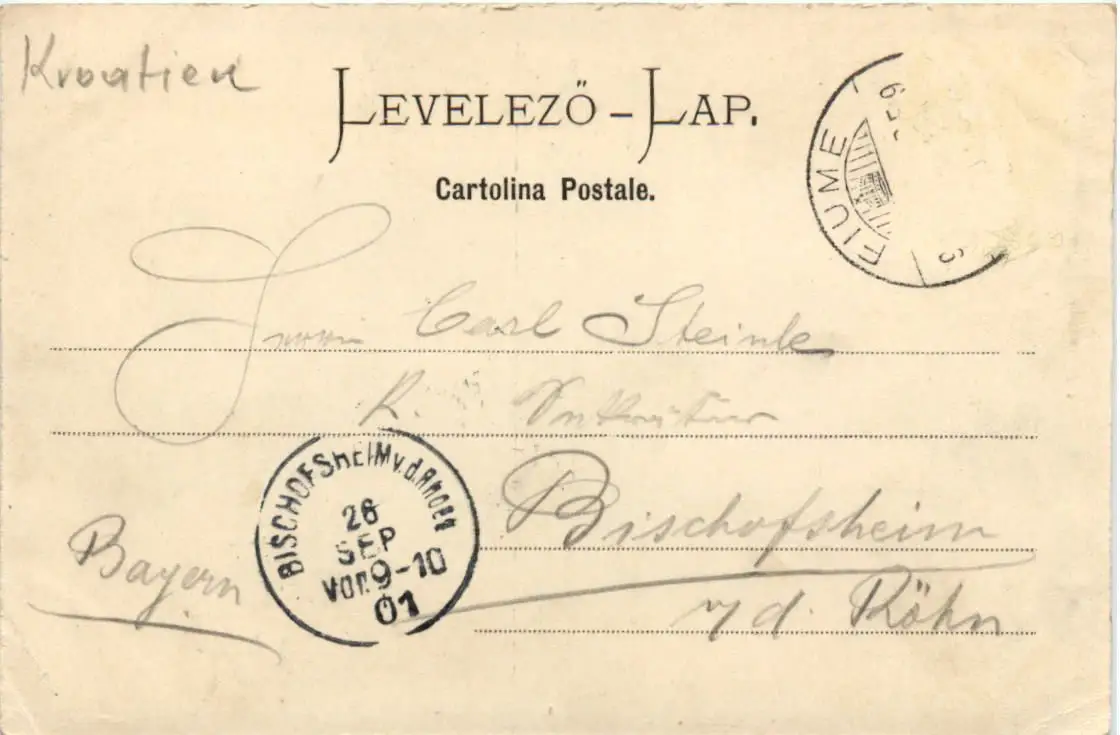 Kroatien
LEVELEZŐ-LAP.
Cartolina Postale.
FIUME
Carl Steinle
K.
BISCHOFSHEIM v.d.RHOEN
26
SEP
VOR.9-10
01
Bischofsheim
Bayern
v/d. Röhn